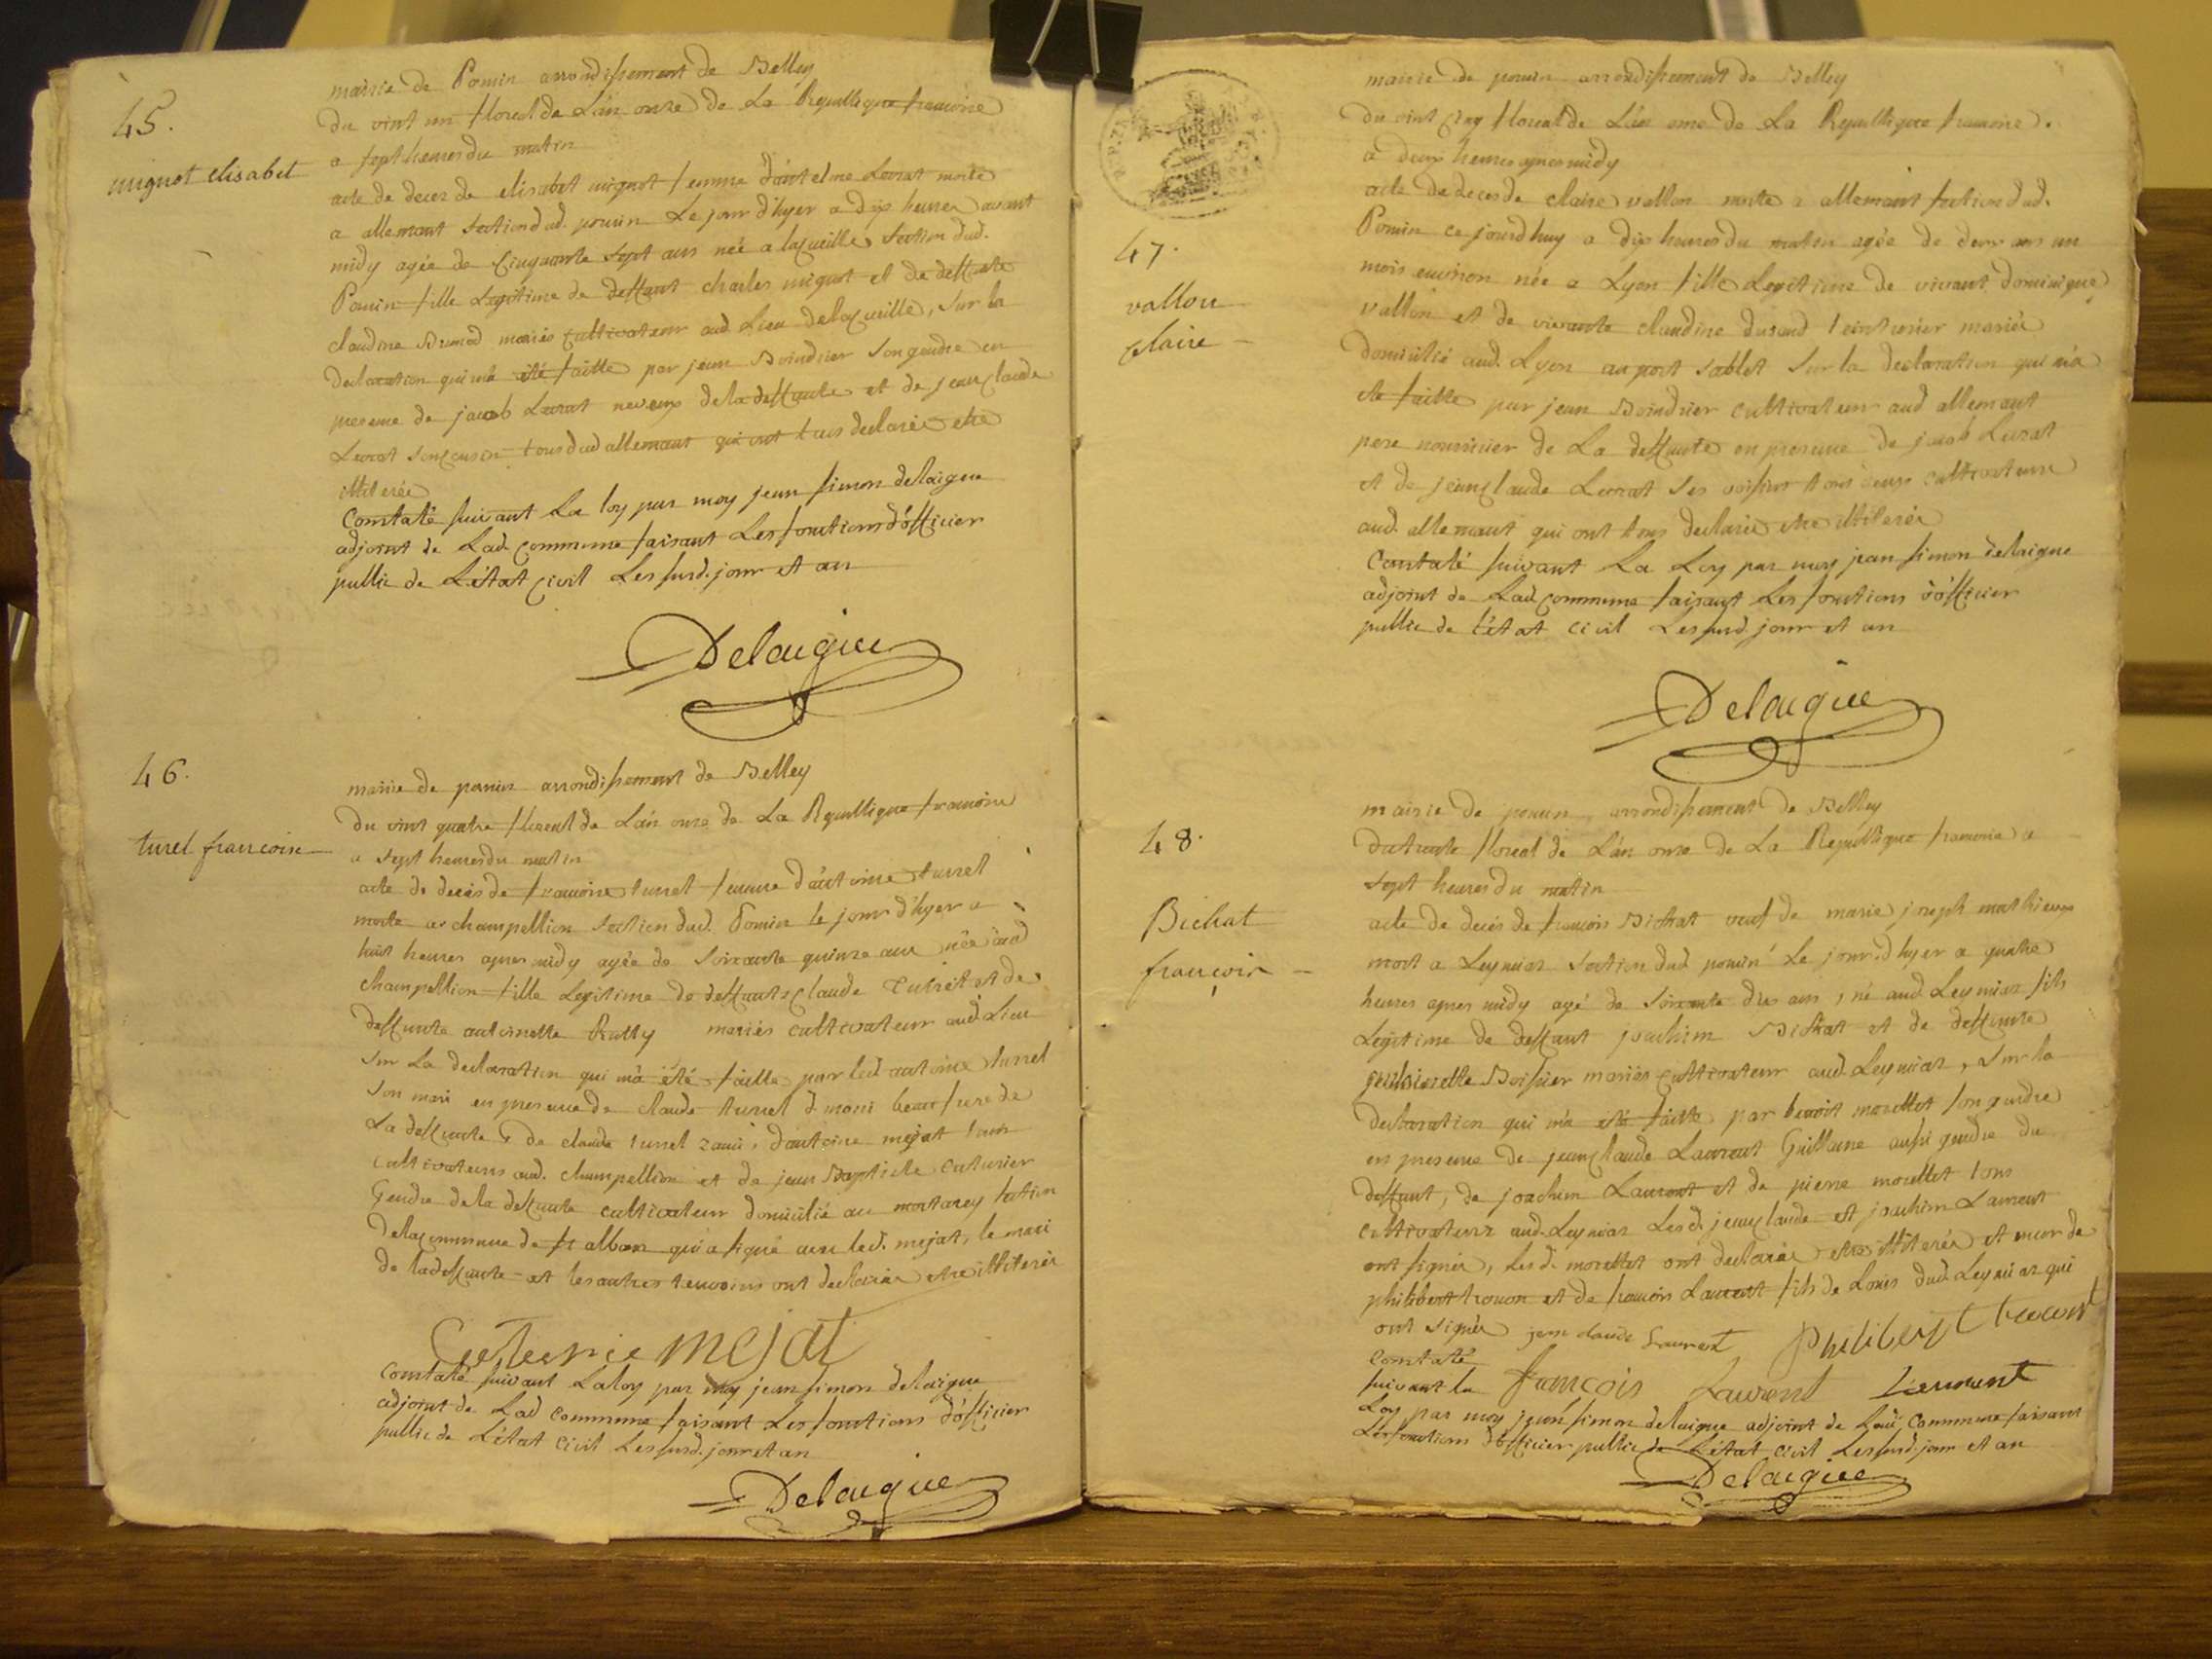 45.
mignot elisabet
mairie de Poncin arrondissement de Belley
du vint un floreal de L'an onze de La Republique francoise
a sept heures du matin
acte de deces de elisabet mignot femme d'antelme Levrat morte
a allemant section dud. poncin Le jour d'hyer a dix heures avant
midy agée de Cinquante sept ans née a lacueille section dud.
Poncin fille Legitime de deffunt charles mignot et de deffunte
claudine mariés cultivateur aud. Lieu delacueille, sur la
declaration qui m'a été faitte par jean Boindrier son gendre en
presence de jacob Levrat neveux de la deffunte et de jean claude
Levrat son cousin tous dud allemant qui ont tous declarés etre
illiterés
Constaté suivant La loy par moy jean simon delaigue
adjoint de Lad. commune faisant Les fonctions d'officier
public de L'état Civil Les susd. jour et an
Delaigue
46.
turel francoise
mairie de poncin arrondissement de Belley
du vint quatre floreal de L'an onze de La Republique francoise
a sept heures du matin
acte de decès de francoise turrel femme d'antoine turrel
morte a champellion section dud. Poncin le jour d'hyer a
huit heures apres midy agée de soixante quinze ans née aud
champellion fille Legitime de deffunts claude et de
deffunte antoinette mariés cultivateur aud. Lieu
sur La declaration qui m'a été faitte par led. antoine turrel
son mari en presence de claude turrel beau frere de
La deffunte de claude turrel d'antoine mejat tous
cultivateurs aud. champellion et de jean Baptiste
Gendre de la deffunte cultivateur domicilié au montarey section
de la commune de st alban qui a signé avec led. mejat, le mari
de la deffunte et les autres temoins ont declarés etre illiterés
mejat
Constaté suivant La loy par moy jean simon delaigue
adjoint de Lad commune faisant Les fonctions d'officier
public de L'état Civil Les susd. jour et an
Delaigue
47.
vallon
claire
mairie de poncin arrondissement de Belley
du vint cinq floreal de L'an onze de La Republique francoise.
a deux heures apres midy
acte de deces de claire vallon morte a allemant section dud.
Poncin ce jourd'huy a dix heures du matin agée de deux ans un
mois environ née a Lyon fille Legitime de vivant dominique
vallon et de vivante claudine durand teinturier mariés
domicilié aud. Lyon au port sablet sur la declaration qui m'a
été faitte par jean Boindrier cultivateur aud allemant
pere nourricier de La deffunte en presence de jacob Levrat
et de jean claude Levrat ses voisins tous deux cultivateurs
aud. allemant qui ont tous declarés etre illiterés
Constaté suivant La Loy par moy jean simon delaigue
adjoint de Lad commune faisant Les fonctions d'officier
public de L'état civil Les susd. jour et an
Delaigue
48.
Bichat
françois
mairie de poncin arrondissement de Belley
du trente floreal de L'an onze de La Republique francoise a
sept heures du matin
acte de decés de francois Bichat veuf de marie joseph mathieu
mort a Leymiat section dud poncin Le jour d'hyer a quatre
heures apres midy agé de soixante dix ans, né aud. Leymiat fils
Legitime de deffunt joachim Bichat et de deffunte
mariés cultivateur aud. Leymiat, sur la
declaration qui m'a été faitte par benoit morellet son gendre
en presence de jean claude Laurent Guillaume aussi gendre du
deffunt, de joachim Laurent et de pierre morellet tous
cultivateurs aud. Leymiat Lesd. jean claude et joachim Laurent
ont signés, Les d. morellet ont declarés etre illiterés et encor de
philibert trocon et de francois Laurent fils de Louis dud Leymiat qui
ont signés jean claude Laurent philibert trocon
Constaté
suivant la françois Laurent Laurent
Loy par moy jean simon delaigue adjoint de Lad. commune faisant
Les fonctions d'officier public de L'état civil Les susd. jour et an
Delaigue